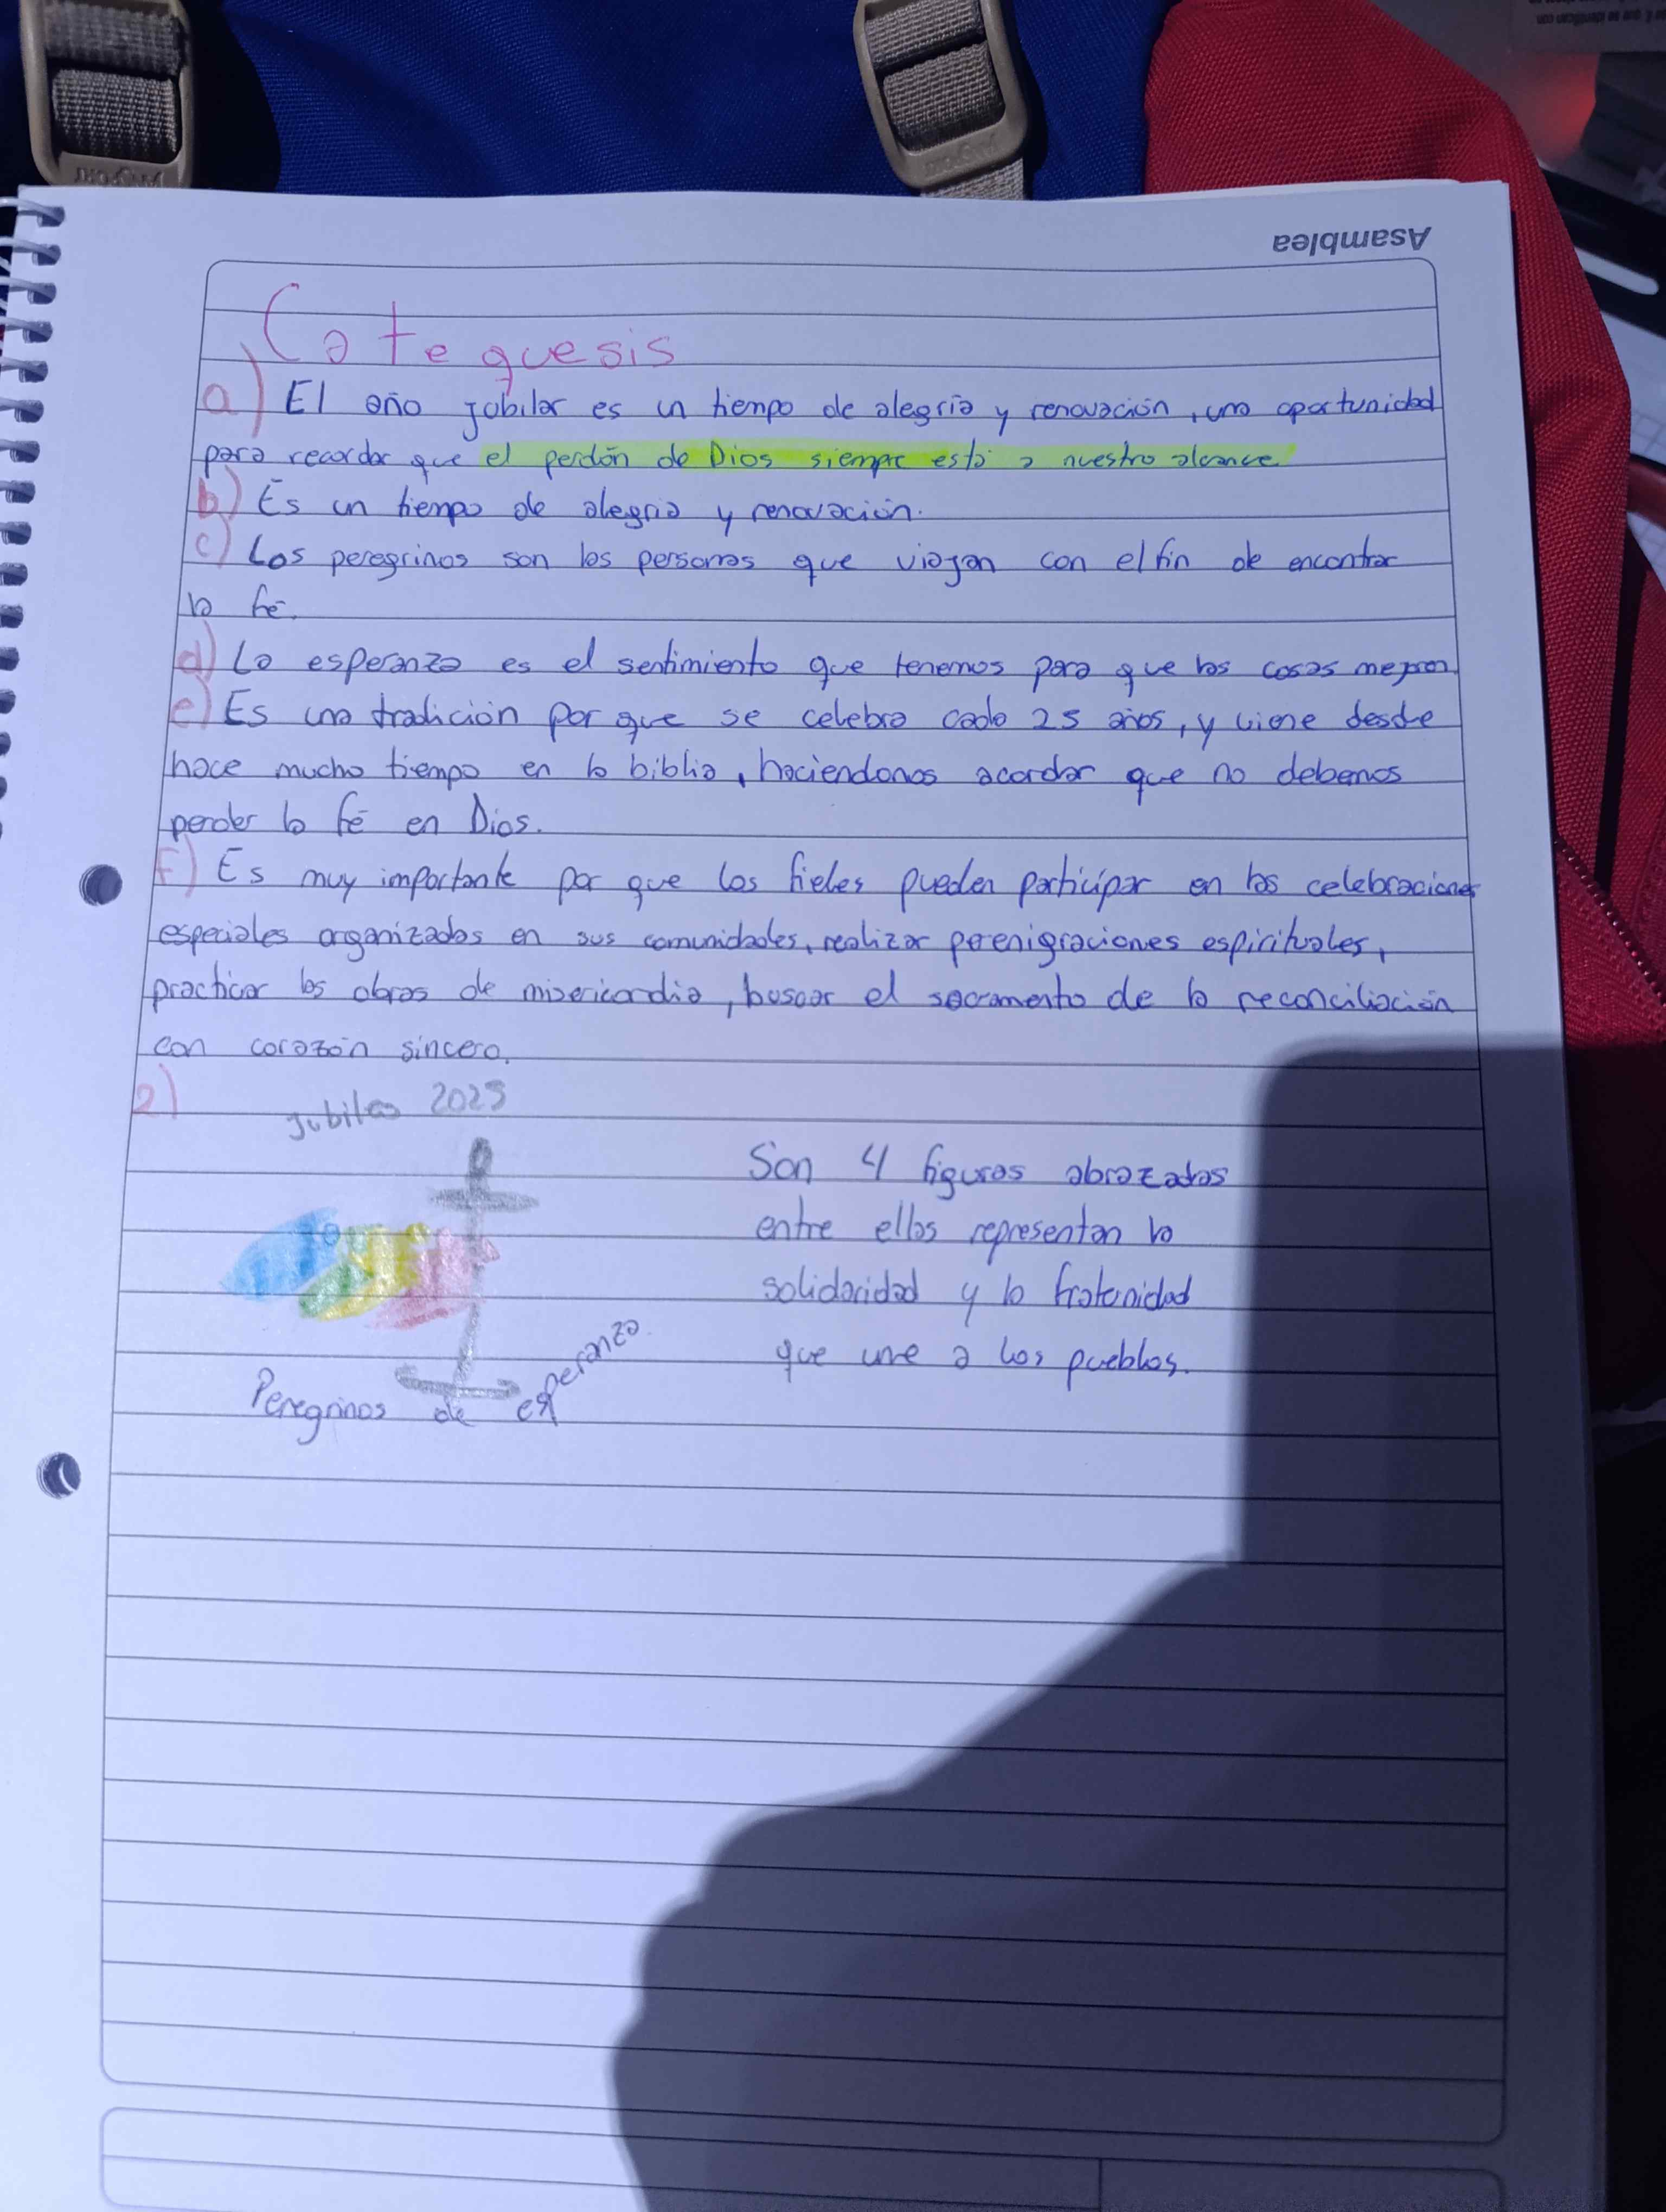 Asamblea
Catequesis
a) El año jubilar es un tiempo de alegria y renovación, una oportunidad
para recordar que el perdón de Dios siempre está a nuestro alcance
b) Es un tiempo de alegria y renovación.
c) Los peregrinos son las personas que viajan con el fin de encontrar
la fé.
d) La esperanza es el sentimiento que tenemos para que las cosas mejoren
e) Es una tradición por que se celebra cada 25 años, y viene desde
hace mucho tiempo en la biblia, haciendonos acordar que no debemos
perder la fé en Dios.
f) Es muy importante por que los fieles pueden participar en las celebraciones
especiales organizadas en sus comunidades, realizar perenigraciones espirituales,
practicar las obras de misericordia, buscar el sacramento de la reconciliación
con corazón sincero.
2) Jubileo 2025
Son 4 figuras abrazadas
entre ellas representan la
solidaridad y la fraternidad
que une a los pueblos.
Peregrinos de esperanza